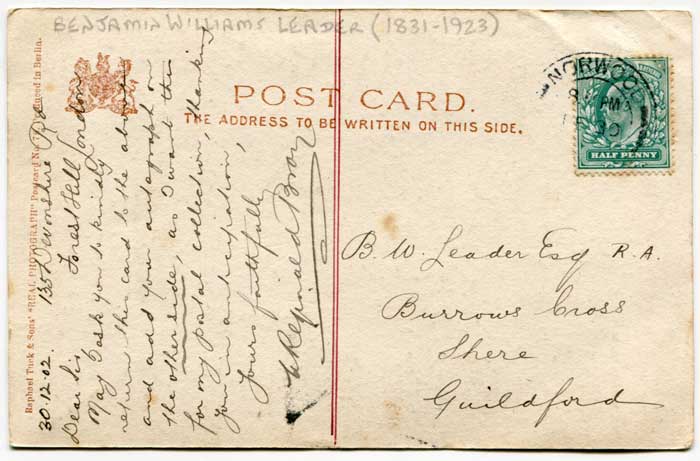 BENJAMIN WILLIAMS LEADER (1831-1923)
POST CARD.
THE ADDRESS TO BE WRITTEN ON THIS SIDE.
NORWOOD
8 PM
HALF PENNY
Raphael Tuck & Sons' "REAL PHOTOGRAPH" Postcard No. Produced in Berlin.
30.12.02. 135 Devonshire Rd
Forest Hill London
Dear Sir
May I ask you to kindly
return this card to the above
and add your autograph on
the other side, as I want this
for my postal collection, thanking
you in anticipation,
Yours faithfully
W Reginald Bray
B. W. Leader Esq R.A.
Burrows Cross
Shere
Guildford